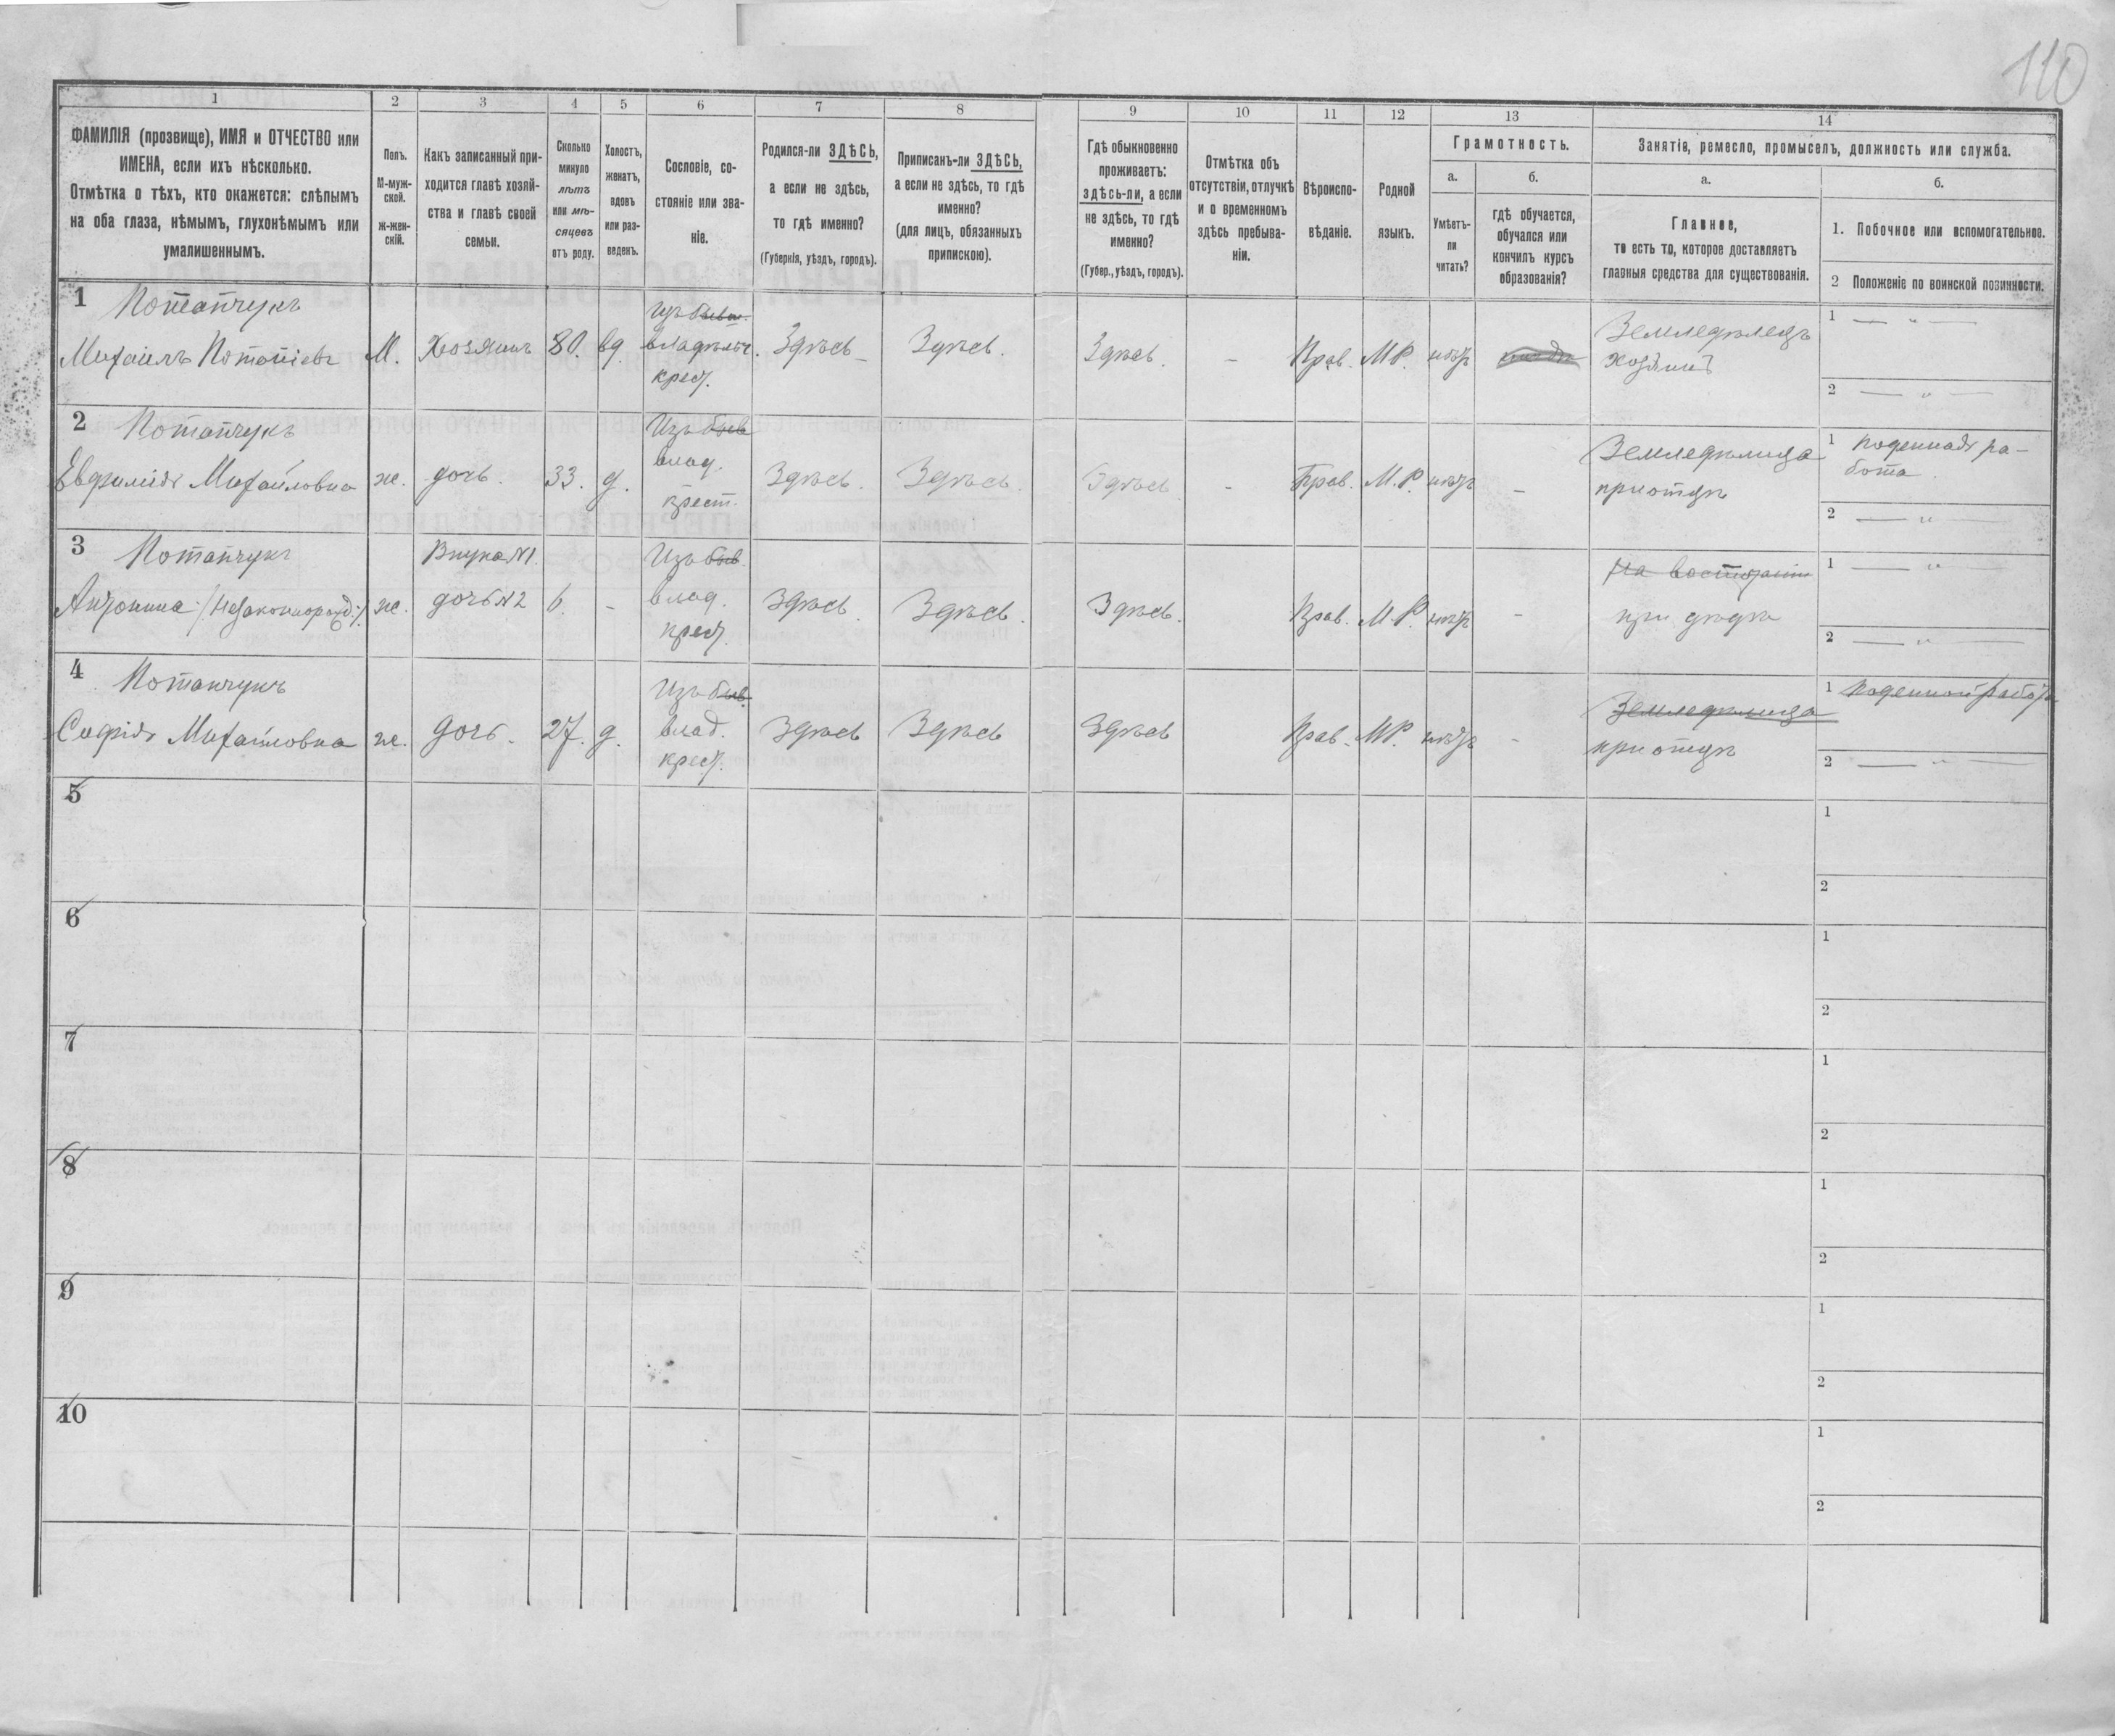 110
1
2
3
4
5
6
7
8
9
10
11
12
13
14
ФАМИЛІЯ (прозвище), ИМЯ и ОТЧЕСТВО или
ИМЕНА, если ихъ нѣсколько.
Отмѣтка о тѣхъ, кто окажется: слѣпымъ
на оба глаза, нѣмымъ, глухонѣмымъ или
умалишеннымъ.
Полъ.
М-муж-
ской.
Ж-жен-
скій.
Какъ записанный при-
ходится главѣ хозяй-
ства и главѣ своей
семьи.
Сколько
минуло
лѣтъ
или мѣ-
сяцевъ
отъ роду.
Холостъ,
женатъ,
вдовъ
или раз-
веденъ.
Сословіе, со-
стояніе или зва-
ніе.
Родился-ли ЗДѢСЬ,
а если не здѣсь,
то гдѣ именно?
(Губернія, уѣздъ, городъ).
Приписанъ-ли ЗДѢСЬ,
а если не здѣсь, то гдѣ
именно?
(для лицъ, обязанныхъ
припискою).
Гдѣ обыкновенно
проживаетъ:
ЗДѢСЬ-ли, а если
не здѣсь, то гдѣ
именно?
(Губер., уѣздъ, городъ).
Отмѣтка объ
отсутствіи, отлучкѣ
и о временномъ
здѣсь пребыва-
ніи.
Вѣроиспо-
вѣданіе.
Родной
языкъ.
Грамотность.
а.
Умѣетъ-
ли
читать?
б.
гдѣ обучается,
обучался или
кончилъ курсъ
образованія?
Занятіе, ремесло, промыселъ, должность или служба.
а.
Главное,
то есть то, которое доставляетъ
главныя средства для существованія.
б.
1. Побочное или вспомогательное.
2 Положеніе по воинской повинности.
1 Потапчукъ
Михаилъ Потапіевъ
М.
Хозяинъ
80.
вд.
Изъ бывш.
владѣльч.
крест.
Здѣсь
Здѣсь.
Здѣсь.
-
Прав.
М.Р.
нѣтъ
Земледѣлецъ
хозяинъ
1 — " —
2 — " —
2 Потапчукъ
Евфимія Михайловна
ж.
дочь.
33.
д.
Изъ быв
влад.
крест.
Здѣсь.
Здѣсь.
Здѣсь
-
Прав.
М.Р.
нѣтъ
-
Земледѣлица
при отцѣ
1 Поденная ра-
бота
2 — " —
3 Потапчукъ
Антонина /незаконнорожд./
ж.
Внука №1.
дочь №2
6.
-
Изъ быв.
влад.
крест.
Здѣсь
Здѣсь.
Здѣсь.
Прав.
М.Р.
нѣтъ
-
при дѣдѣ
1 — " —
2 — " —
4 Потапчукъ
Софія Михайловна
ж.
дочь.
27.
д.
Изъ быв.
влад.
крест.
Здѣсь
Здѣсь
Здѣсь
Прав.
М.Р.
нѣтъ
-
Земледѣлица
при отцѣ
1
2 — " —
5
1
2
6
1
2
7
1
2
8
1
2
9
1
2
10
1
2